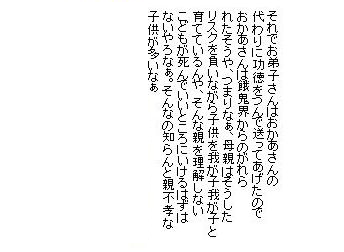 それでお弟子さんはおかあさんの
代わりに功徳をつんで送ってあげたので
おかあさんは餓鬼界からのがれら
れたそうや、つまりなぁ、母親はそうした
リスクを負いながら子供を我が子我が子と
育てているんや、そんな親を理解しない
こどもが死んでいいところにいけるはずは
ないやろなぁ。そんなの知らんと親不孝な
子供が多いなぁ